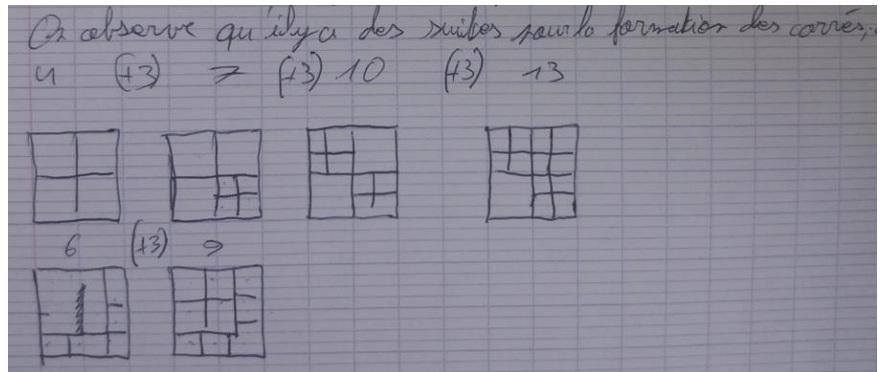 On observe qu'il y a des suites pour la formation des carrés,
4 (+3) 7 (+3) 10 (+3) 13
6 (+3) 9